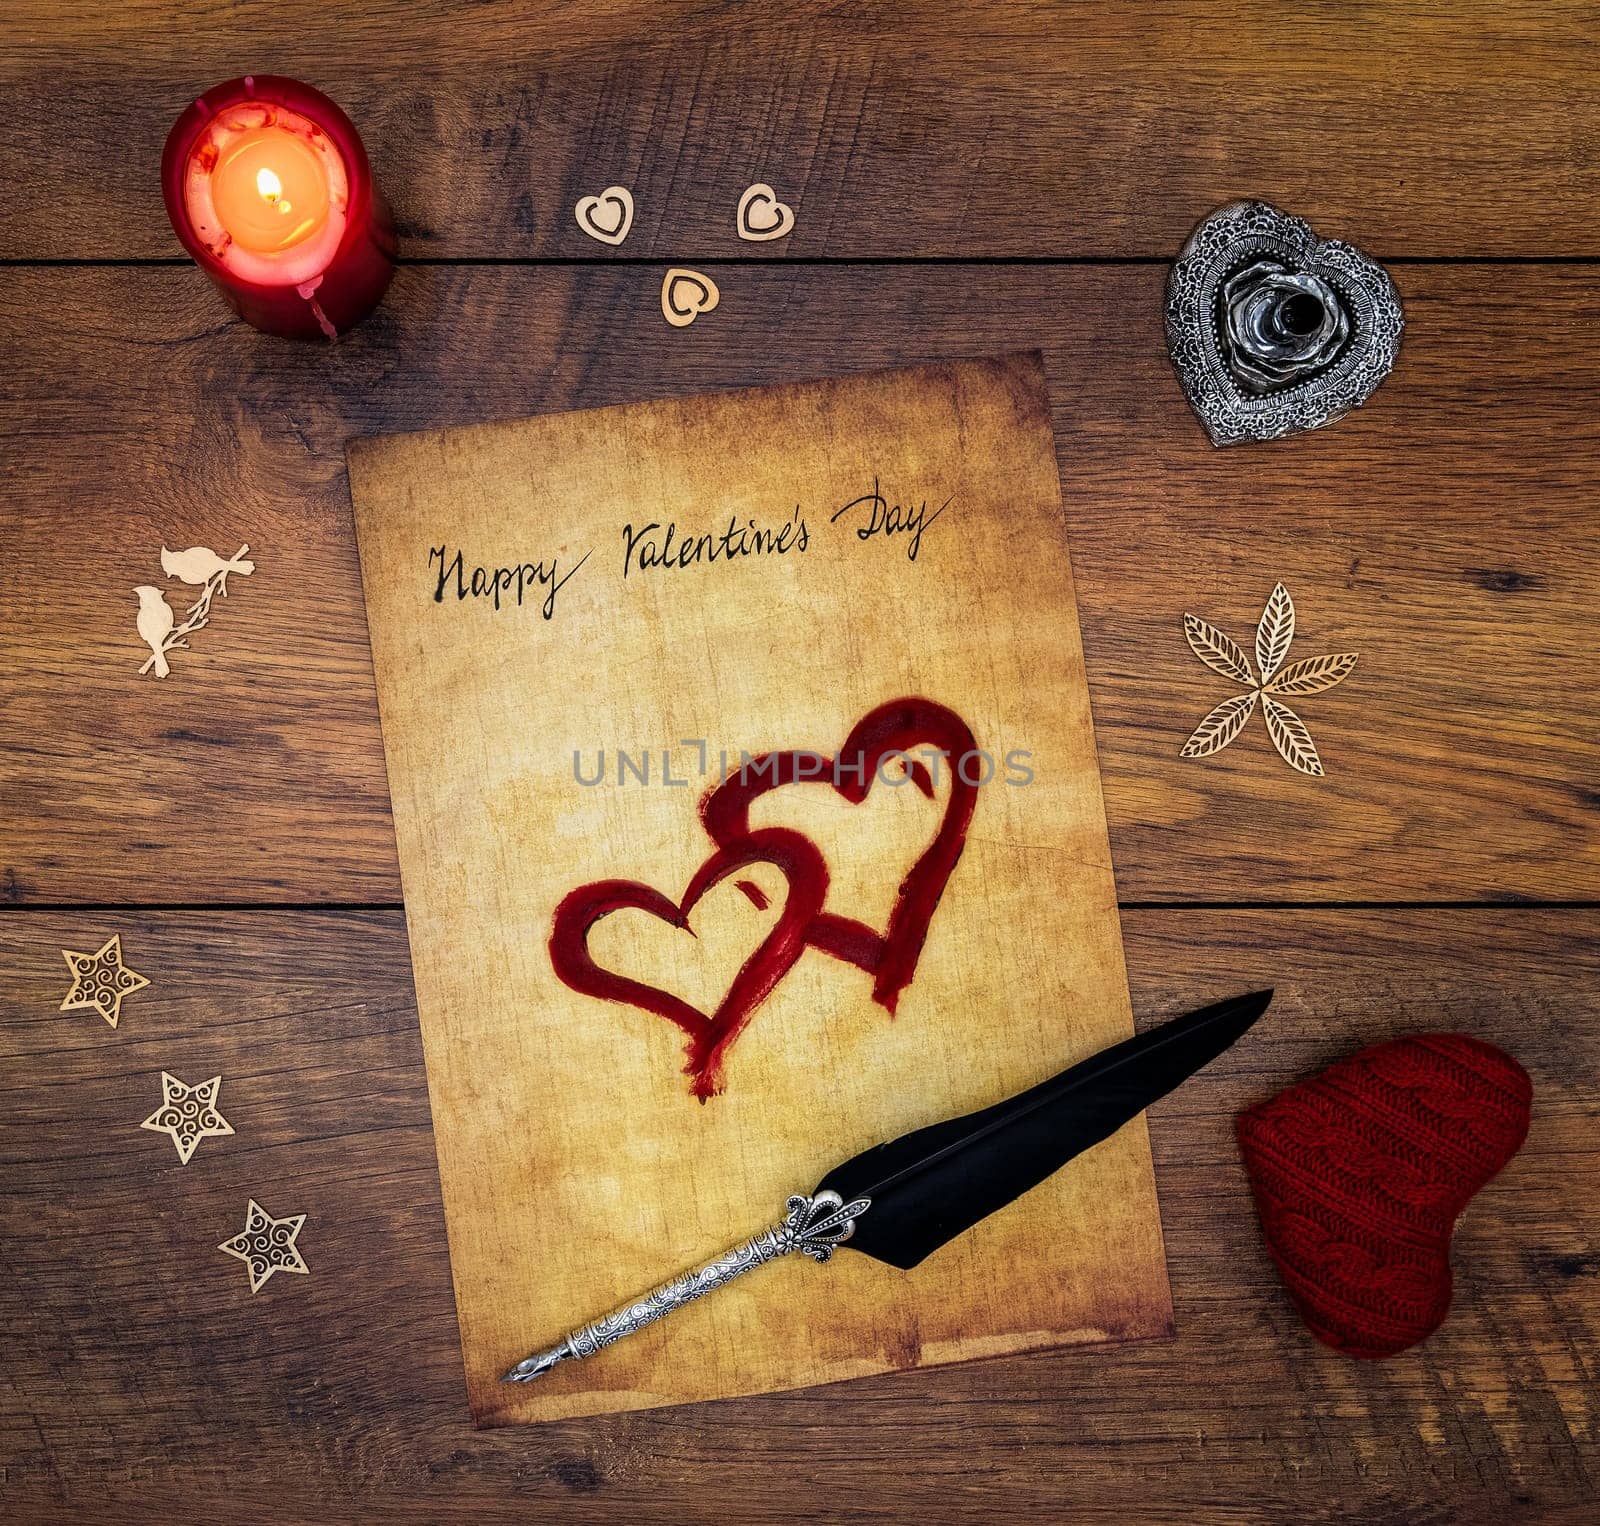 Happy Valentine's Day
UNLIMPHOTOS